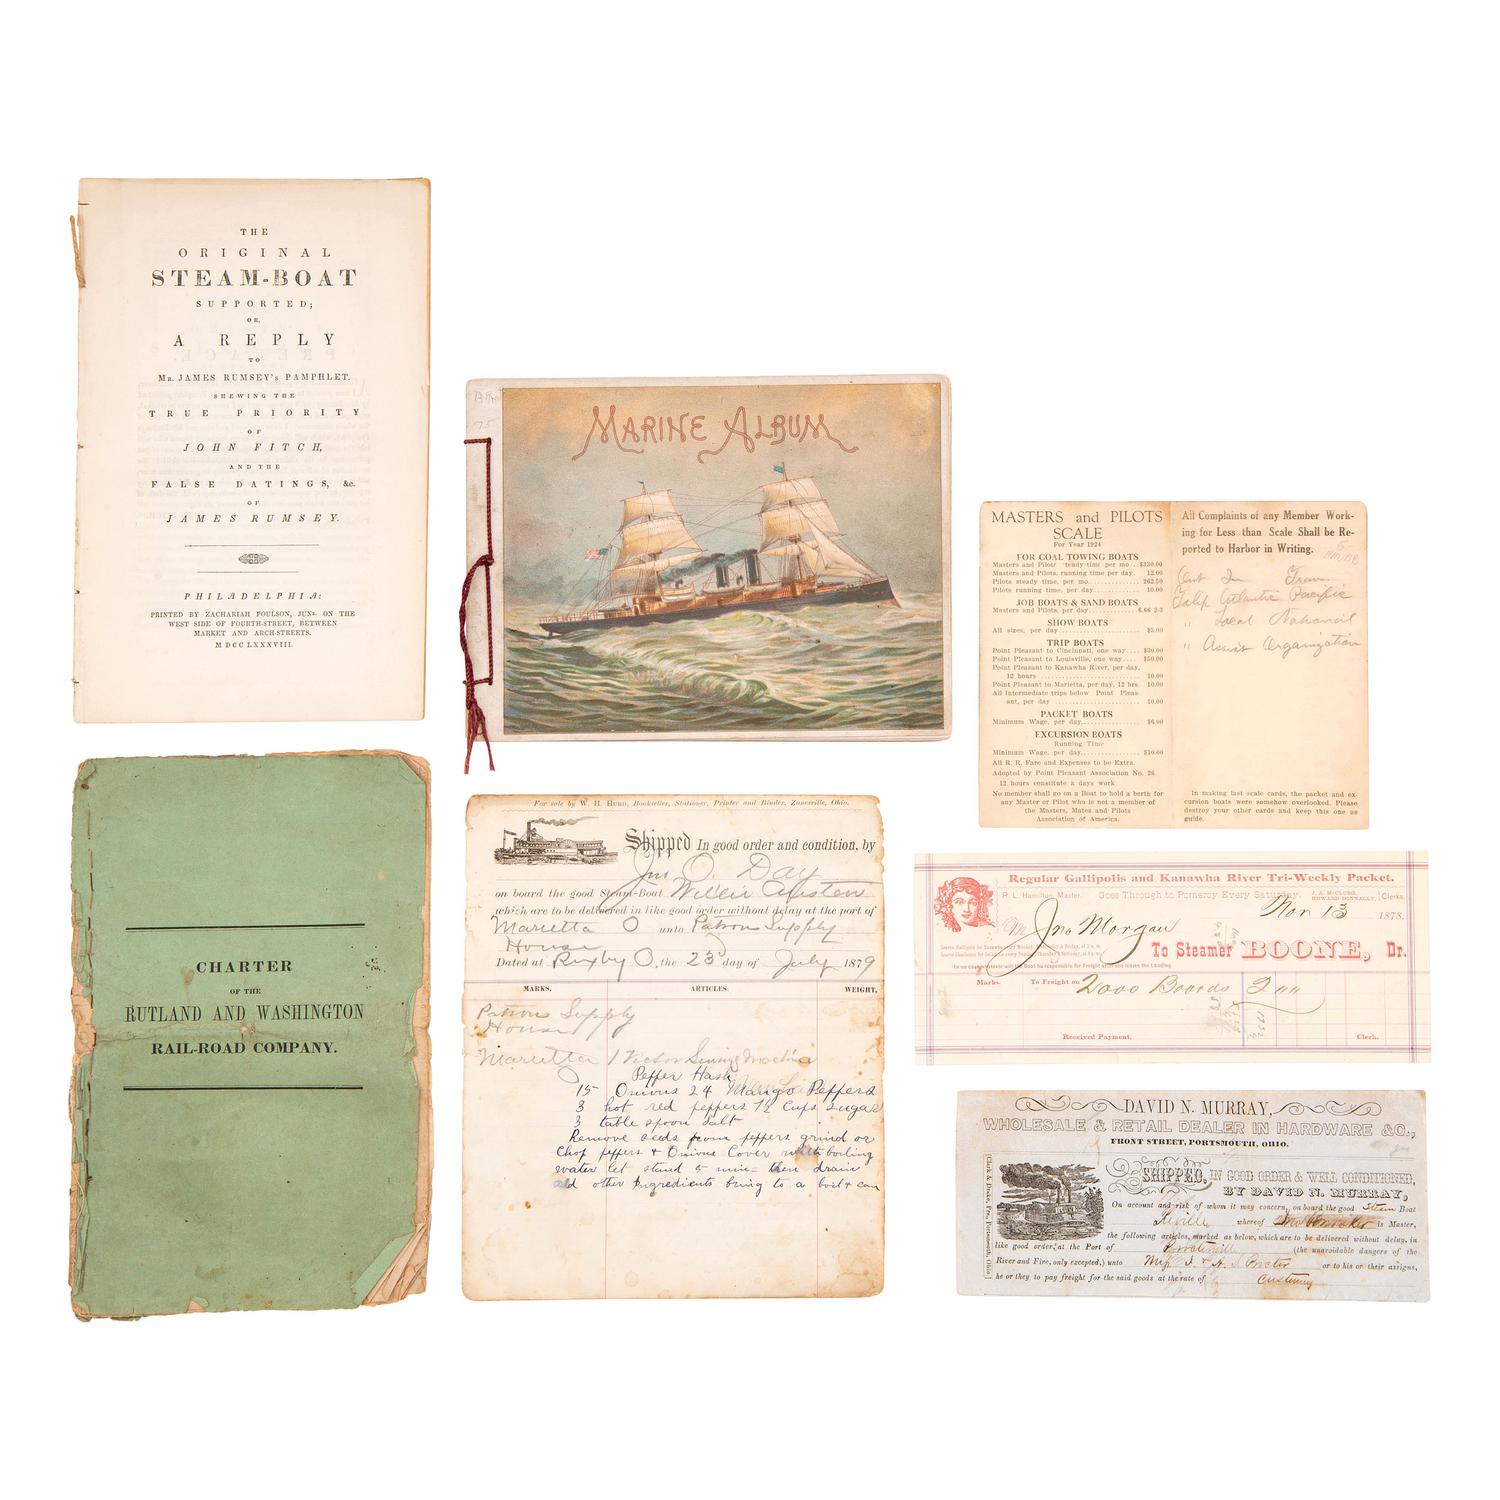 THE
ORIGINAL
STEAM-BOAT
SUPPORTED;
OR,
A REPLY
TO
MR. JAMES RUMSEY'S PAMPHLET.
SHEWING THE
TRUE PRIORITY
OF
JOHN FITCH,
AND THE
FALSE DATINGS, &c.
OF
JAMES RUMSEY.
PHILADELPHIA:
PRINTED BY ZACHARIAH POULSON, JUNR. ON THE
WEST SIDE OF FOURTH-STREET, BETWEEN
MARKET AND ARCH-STREETS.
MDCCLXXXVIII.
CHARTER
OF THE
RUTLAND AND WASHINGTON
RAIL-ROAD COMPANY.
75
MARINE ALBUM
For sale by W. H. HURD, Bookseller, Stationer, Printer and Binder, Zanesville, Ohio.
Shipped In good order and condition, by
Jno O. Day
on board the good Steam-Boat Willie Austen
which are to be delivered in like good order without delay at the port of
Marietta O unto Patrons Supply
House
Dated at Rixby O, the 23d day of July 1879
MARKS. ARTICLES. WEIGHT,
Patrons Supply
House
Marietta 1 Victor Sewing Machine
O
Pepper Hash
15 Onions 24 Mango Peppers
3 hot red peppers 1½ cups sugar
3 table spoon salt
Remove seeds from peppers grind or
chop peppers + Onions Cover with boiling
water let stand 5 min = then drain
add other ingredients bring to a boil + can
MASTERS and PILOTS
SCALE
For Year 1924
FOR COAL TOWING BOATS
Masters and Pilots steady time per mo...$330.00
Masters and Pilots, running time per day. 12.00
Pilots steady time, per mo. 262.50
Pilots running time, per day 10.00
JOB BOATS & SAND BOATS
Masters and Pilots, per day 6.66 2-3
SHOW BOATS
All sizes, per day $5.00
TRIP BOATS
Point Pleasant to Cincinnati, one way $30.00
Point Pleasant to Louisville, one way $50.00
Point Pleasant to Kanawha River, per day,
12 hours 10.00
Point Pleasant to Marietta, per day, 12 hrs. 10.00
All Intermediate trips below Point Pleas-
ant, per day 10.00
PACKET BOATS
Minimum Wage, per day $6.00
EXCURSION BOATS
Running Time
Minimum Wage, per day $10.00
All R. R. Fare and Expenses to be Extra.
Adopted by Point Pleasant Association No. 26.
12 hours constitute a days work
No member shall go on a Boat to hold a berth for
any Master or Pilot who is not a member of
the Masters, Mates and Pilots
Association of America.
All Complaints of any Member Work-
ing for Less than Scale Shall be Re-
ported to Harbor in Writing.
Atlantic Pacific
" Local National
" Organization
In making last scale cards, the packet and ex-
cursion boats were somehow overlooked. Please
destroy your other cards and keep this one as
guide.
Regular Gallipolis and Kanawha River Tri-Weekly Packet.
R. L. Hamilton, Master. Goes Through to Pomeroy Every Saturday. J. A. McCLURG, HOWARD DONNALLY, } Clerks.
Nov 13 1878.
M Jno Morgan
To Steamer BOONE, Dr.
Marks. To Freight on 2000 Boards 2 00
Received Payment, Clerk.
DAVID N. MURRAY,
WHOLESALE & RETAIL DEALER IN HARDWARE &C.,
FRONT STREET, PORTSMOUTH, OHIO.
[Clark & Drake, Prs, Portsmouth, Ohio]
SHIPPED, IN GOOD ORDER & WELL CONDITIONED,
BY DAVID N. MURRAY,
On account and risk of whom it may concern, on board the good Steam Boat
whereof is Master,
the following articles, marked as below, which are to be delivered without delay, in
like good order, at the Port of (the unavoidable dangers of the
River and Fire, only excepted,) unto or to his or their assigns,
he or they to pay freight for the said goods at the rate of customary